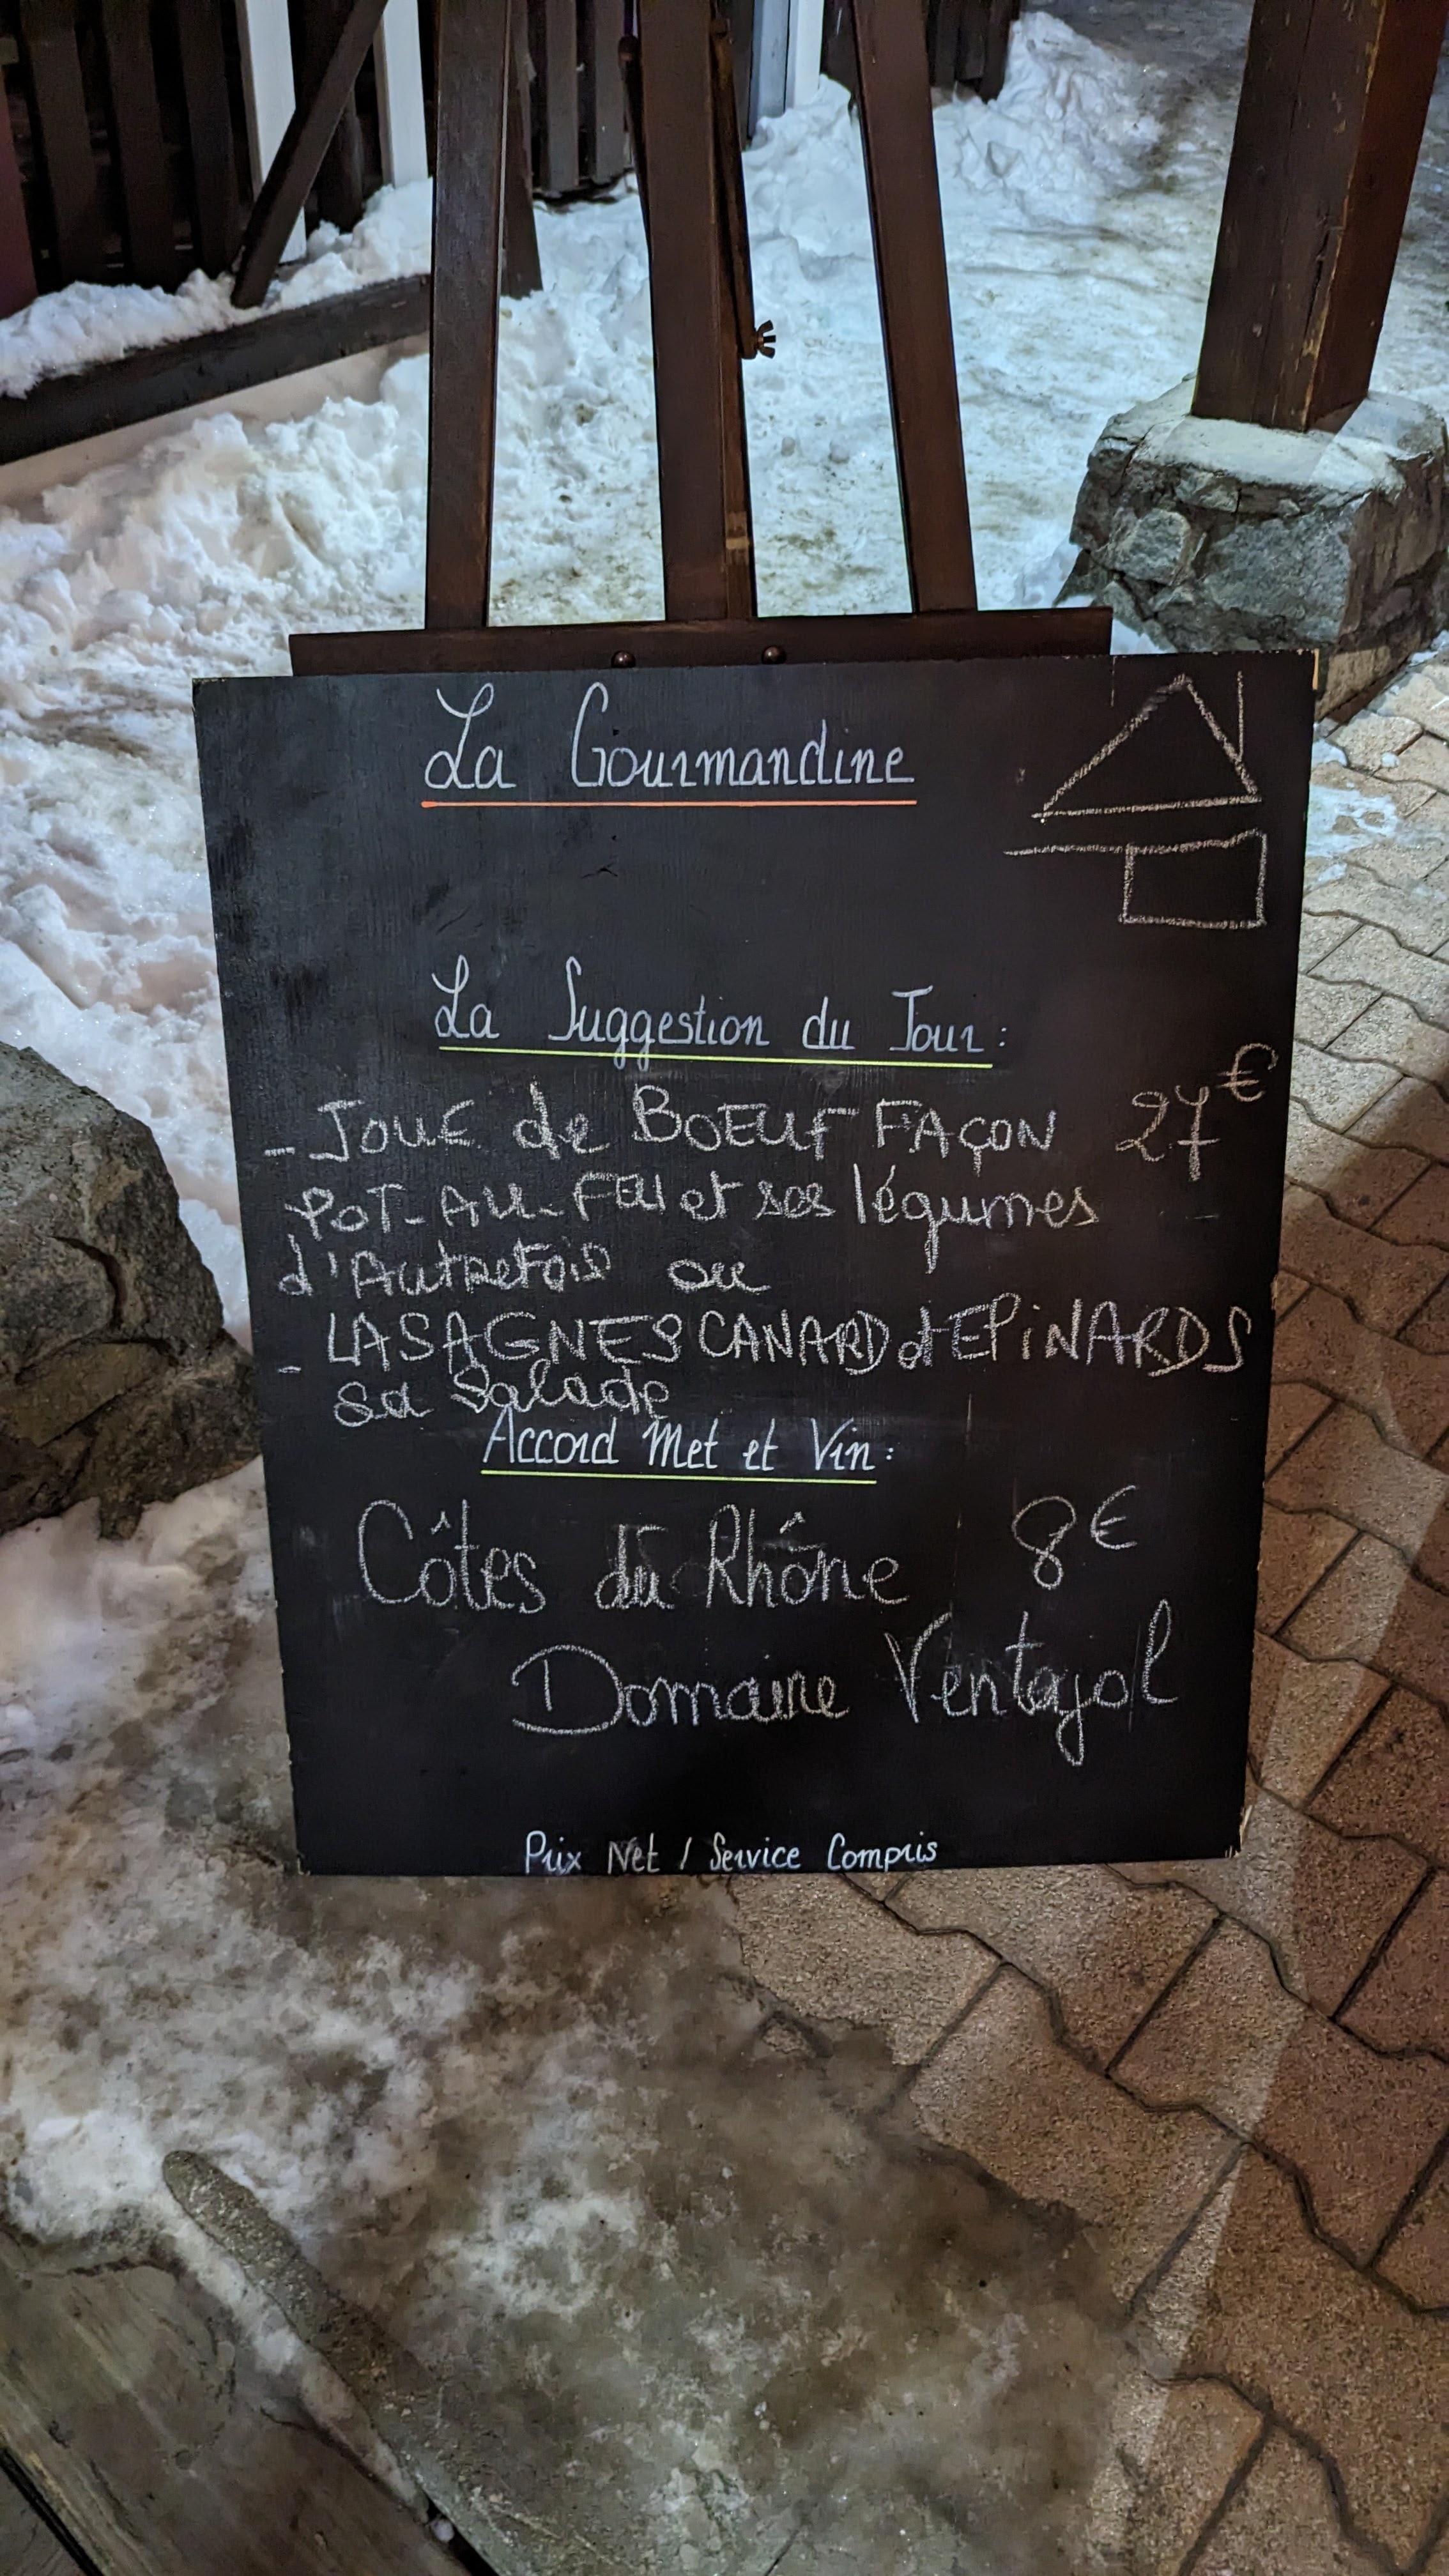 La Gourmandine
La Suggestion du Jour :
- JOUE de BOEUF FAÇON 27€
POT-AU-FEU et ses légumes
d'Autrefois ou
- LASAGNES CANARD et EPiNARDS
sa Salade
Accord Met et Vin :
Côtes du Rhône 8€
Domaine Ventajol
Prix Net / Service Compris